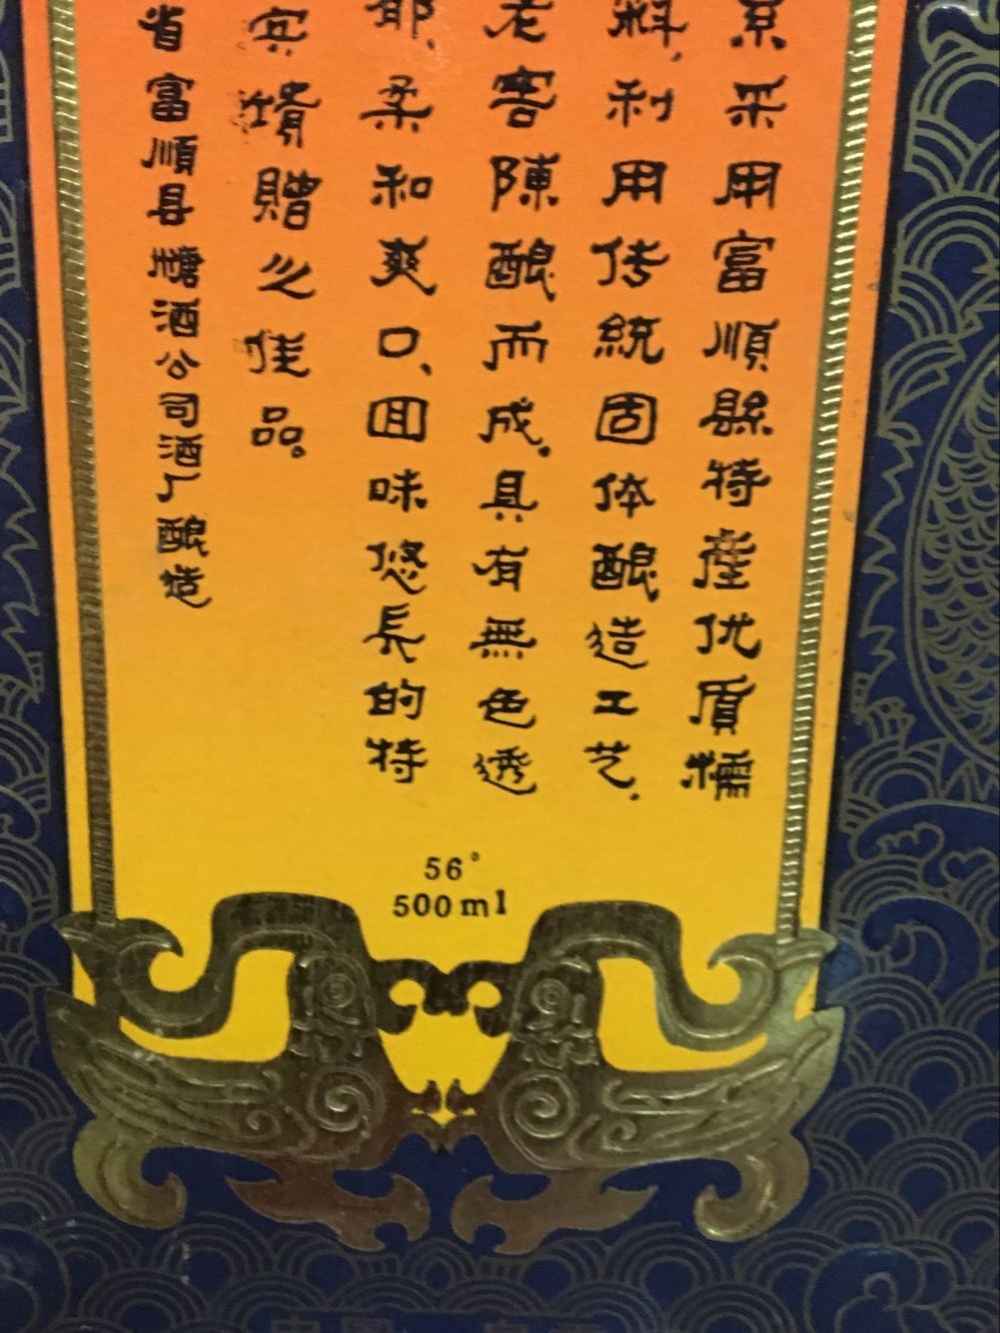 系采用富順縣特産优质糯
料,利用传統固体酿造工艺.
老窖陳酿而成。具有無色透
郁、柔和爽口、囬味悠長的特
宾、馈赠之佳品。
省富順县糖酒公司酒厂酿造
56°
500ml